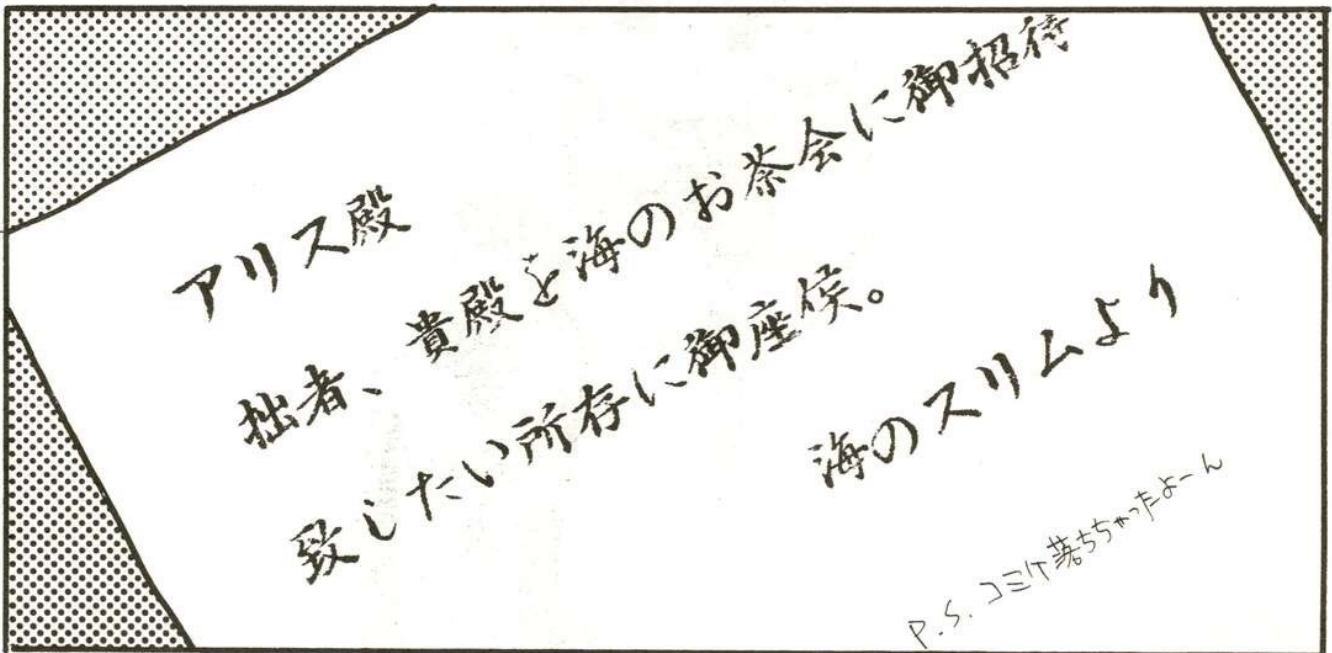 アリス殿
拙者、貴殿を海のお茶会に御招待
致したい所存に御座候。
海のスリムより
P.S. コミケ落ちちゃったよーん